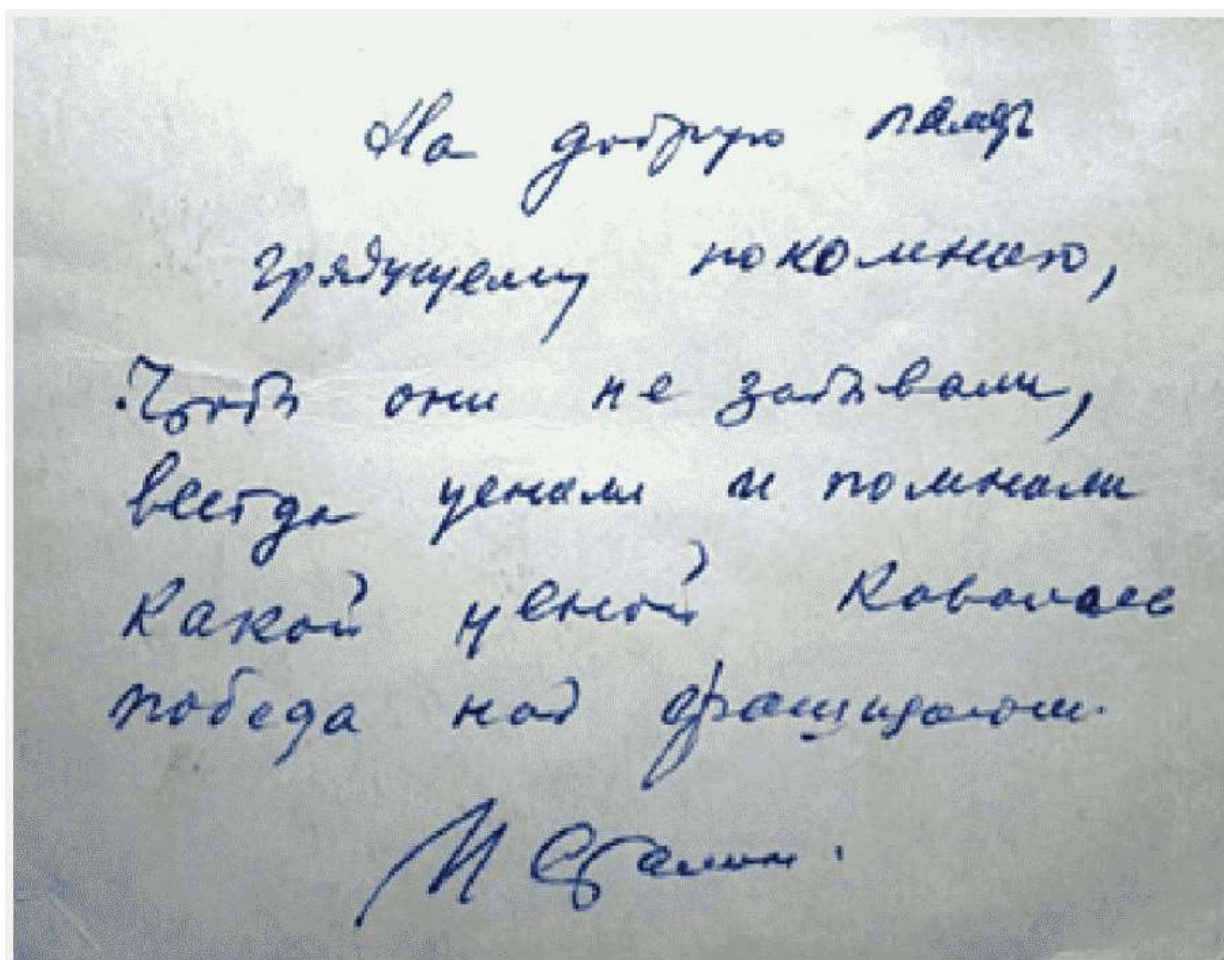 На добрую память
грядущему поколению,
Чтобы они не забывали,
всегда ценили и помнили
какой ценой ковалась
победа над фашизмом.
И Сталин.